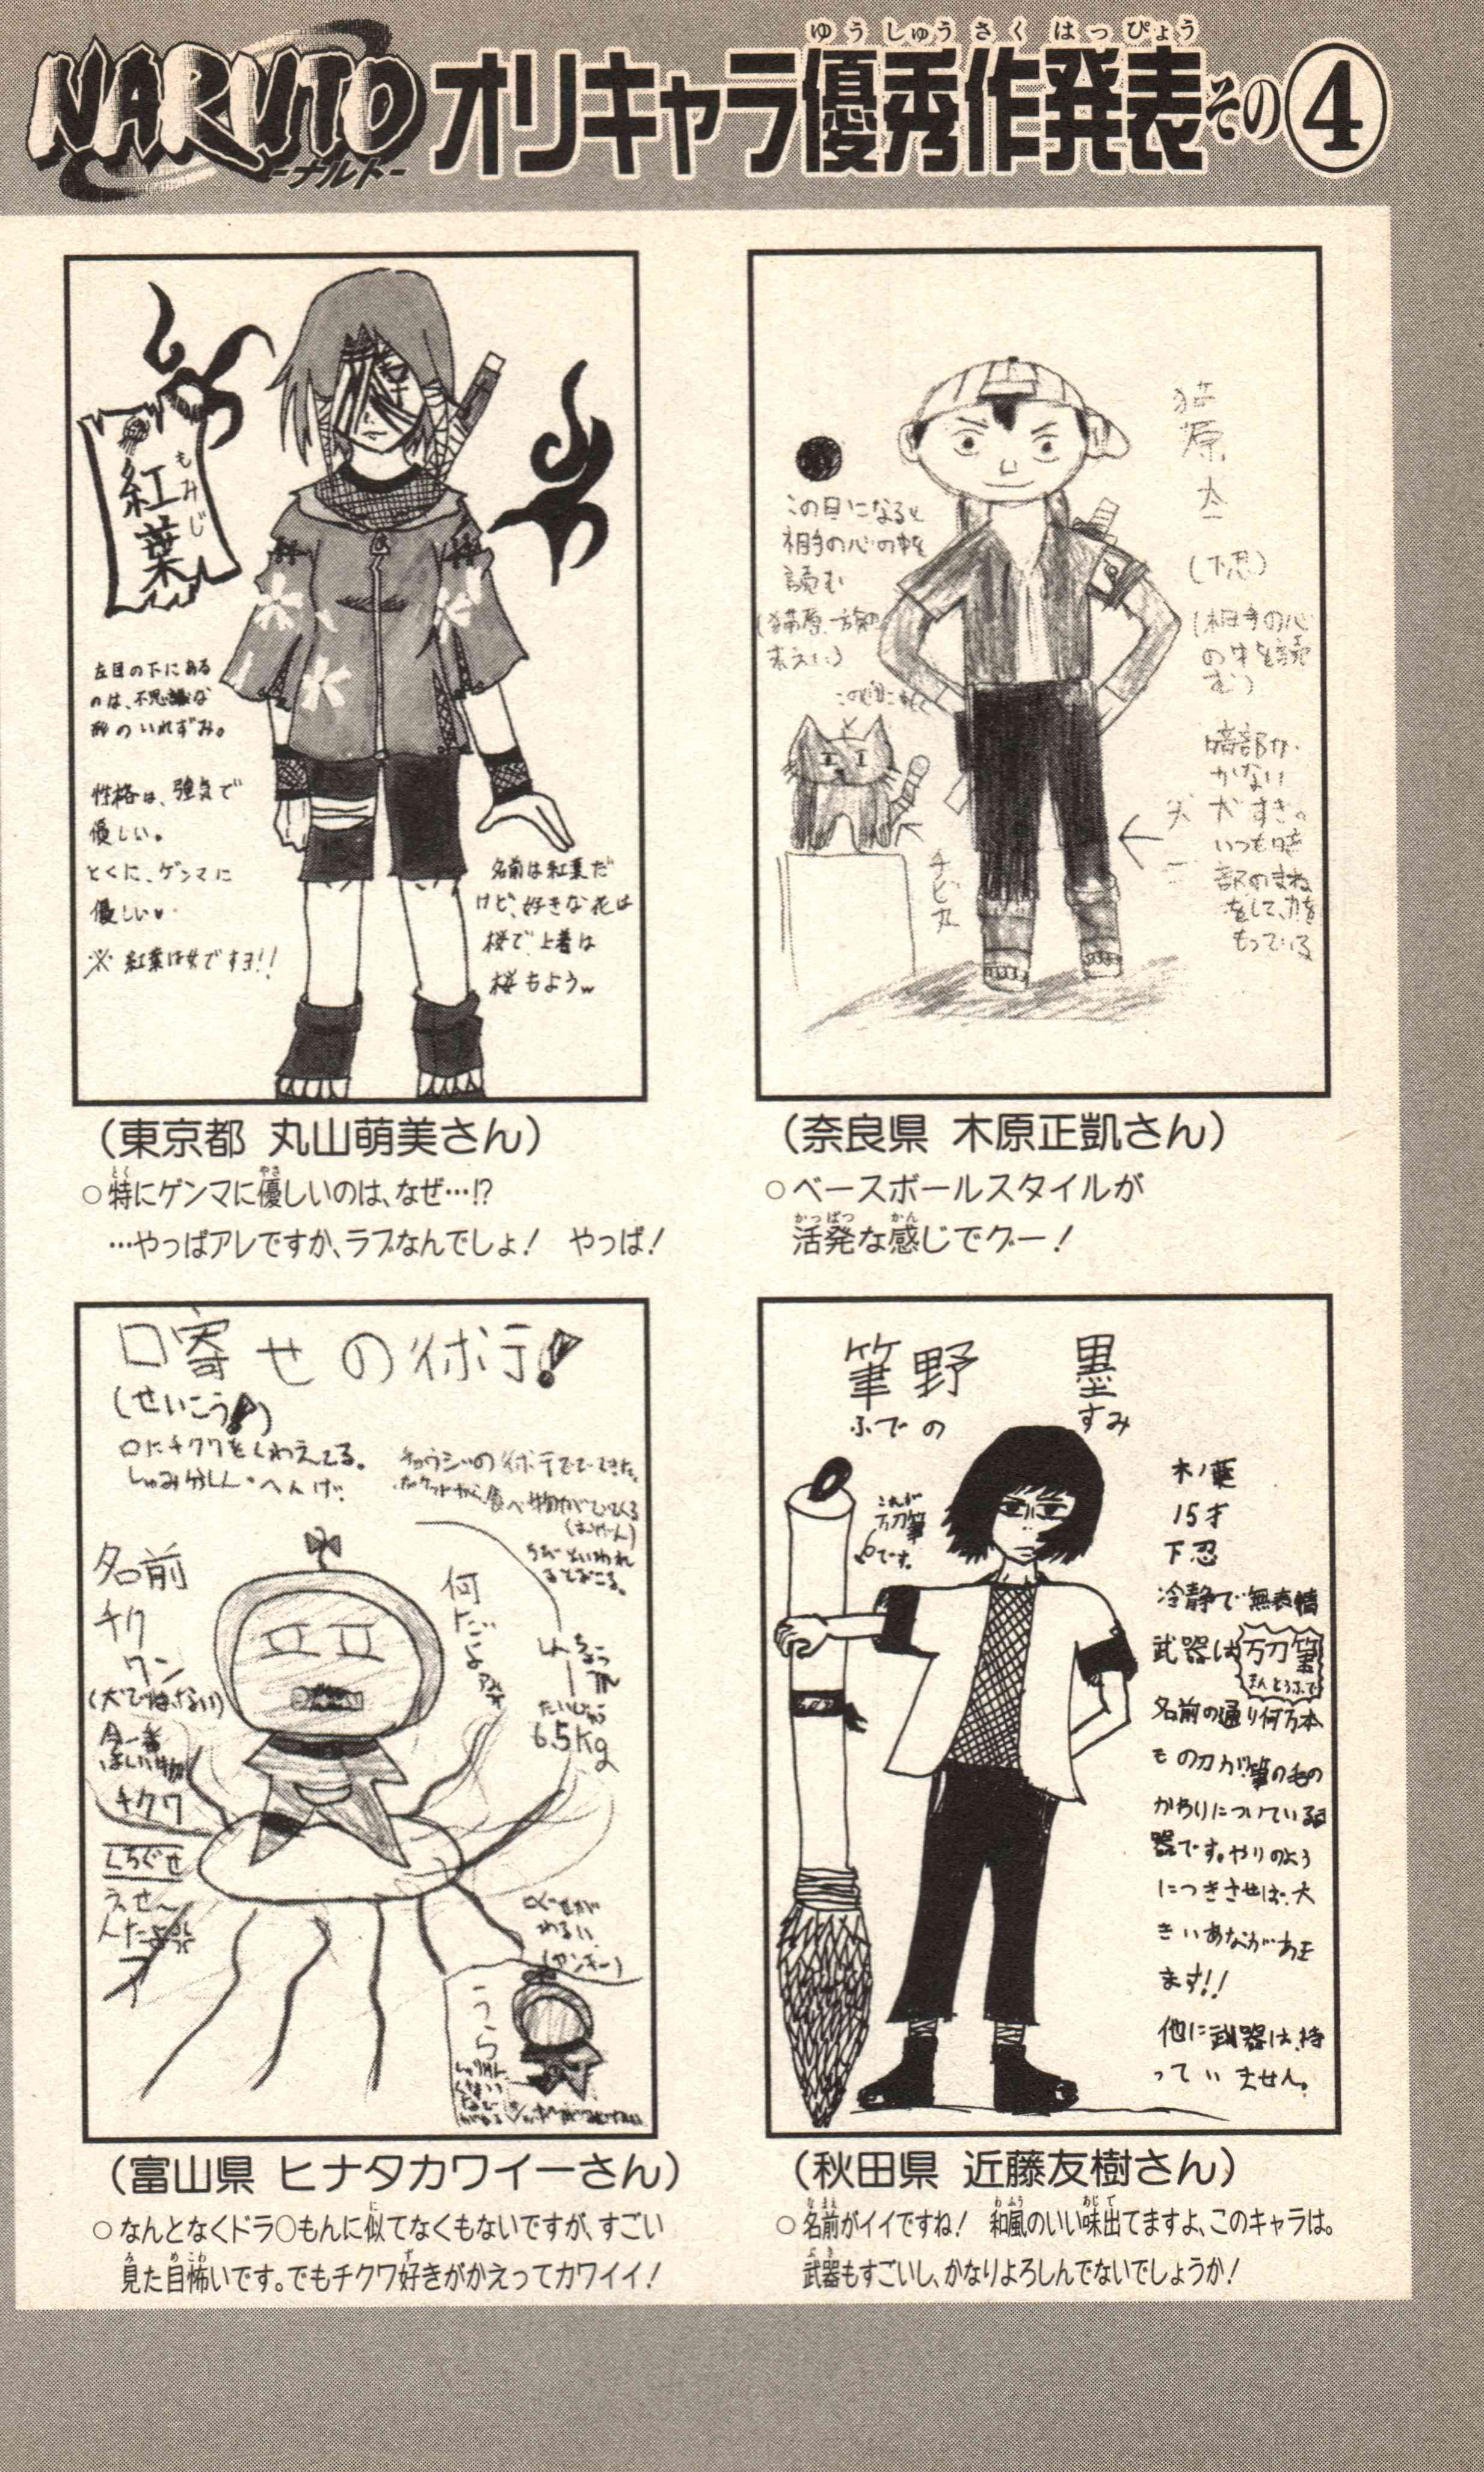 NARUTO
-ナルト-
オリキャラ優秀作発表その④
ゆうしゅうさくはっぴょう
紅葉
もみじ
左目の下にある
のは、不思議な
形のいれずみ。
性格は、強気で
優しい。
とくに、ゲンマに
優しい♥
※紅葉は女ですヨ!!
名前は紅葉だ
けど、好きな花は
桜で上着は
桜もよう
(東京都 丸山萌美さん)
○特にゲンマに優しいのは、なぜ…!?
…やっぱアレですか、ラブなんでしょ! やっぱ!
この目になると
相手の心の中を
読む
チビ丸
(下忍)
(相手の心
の中を読
む)
(奈良県 木原正凱さん)
○ベースボールスタイルが
活発な感じでグー!
口寄せの術!
(せいこう!)
口にチクワをくわえてる。
名前
チク
ワン
(犬ではない)
今一番
ほしい物
チクワ
くちぐせ
たいじゅう
6.5Kg
(ヤンキー)
うら
(富山県 ヒナタカワイーさん)
○なんとなくドラ○もんに似てなくもないですが、すごい
見た目怖いです。でもチクワ好きがかえってカワイイ!
筆野 墨
ふでの すみ
これが
万刀筆
です。
木ノ葉
15才
下忍
冷静で無表情
武器は万刀筆
まんとうふで
名前の通り何万本
もの刀が筆の毛の
かわりについている武
器です。やりのよう
につきさせば、大
きいあながあき
ます!!
他に武器は、持
っていません。
(秋田県 近藤友樹さん)
○名前がイイですね! 和風のいい味出てますよ、このキャラは。
武器もすごいし、かなりよろしんでないでしょうか!